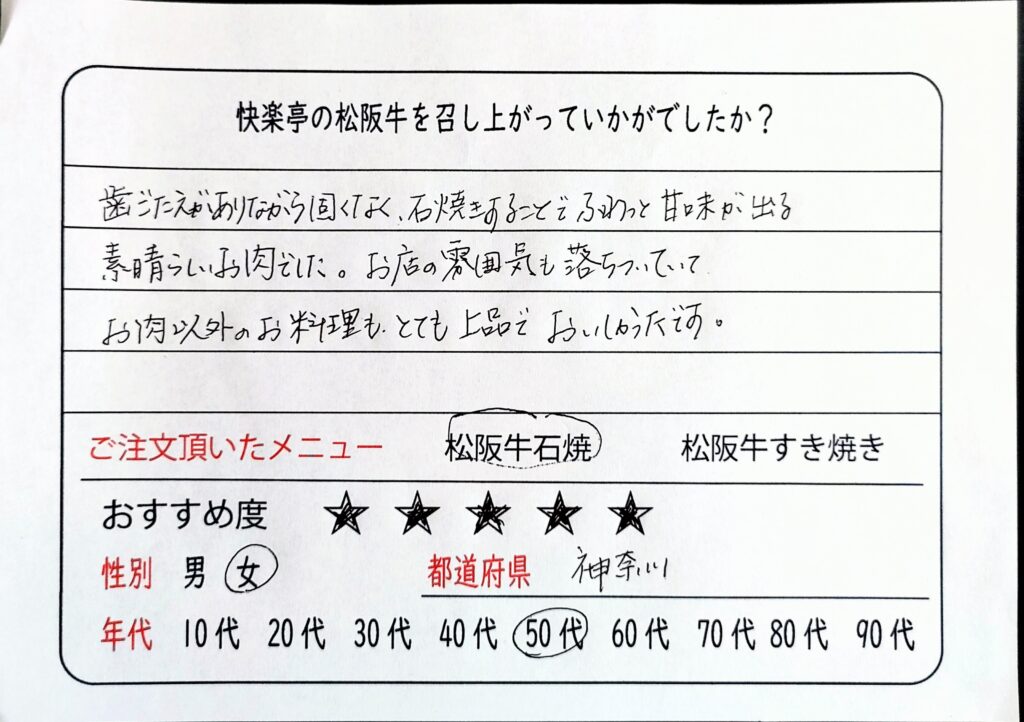 快楽亭の松阪牛を召し上がっていかがでしたか？
歯ごたえがありながら固くなく、石焼きすることでふわっと甘味が出る
素晴らしいお肉でした。お店の雰囲気も落ちついていて
お肉以外のお料理も、とても上品でおいしかったです。
ご注文頂いたメニュー 松阪牛石焼 松阪牛すき焼き
おすすめ度 ★ ★ ★ ★ ★
性別 男 女 都道府県 神奈川
年代 10代 20代 30代 40代 50代 60代 70代 80代 90代